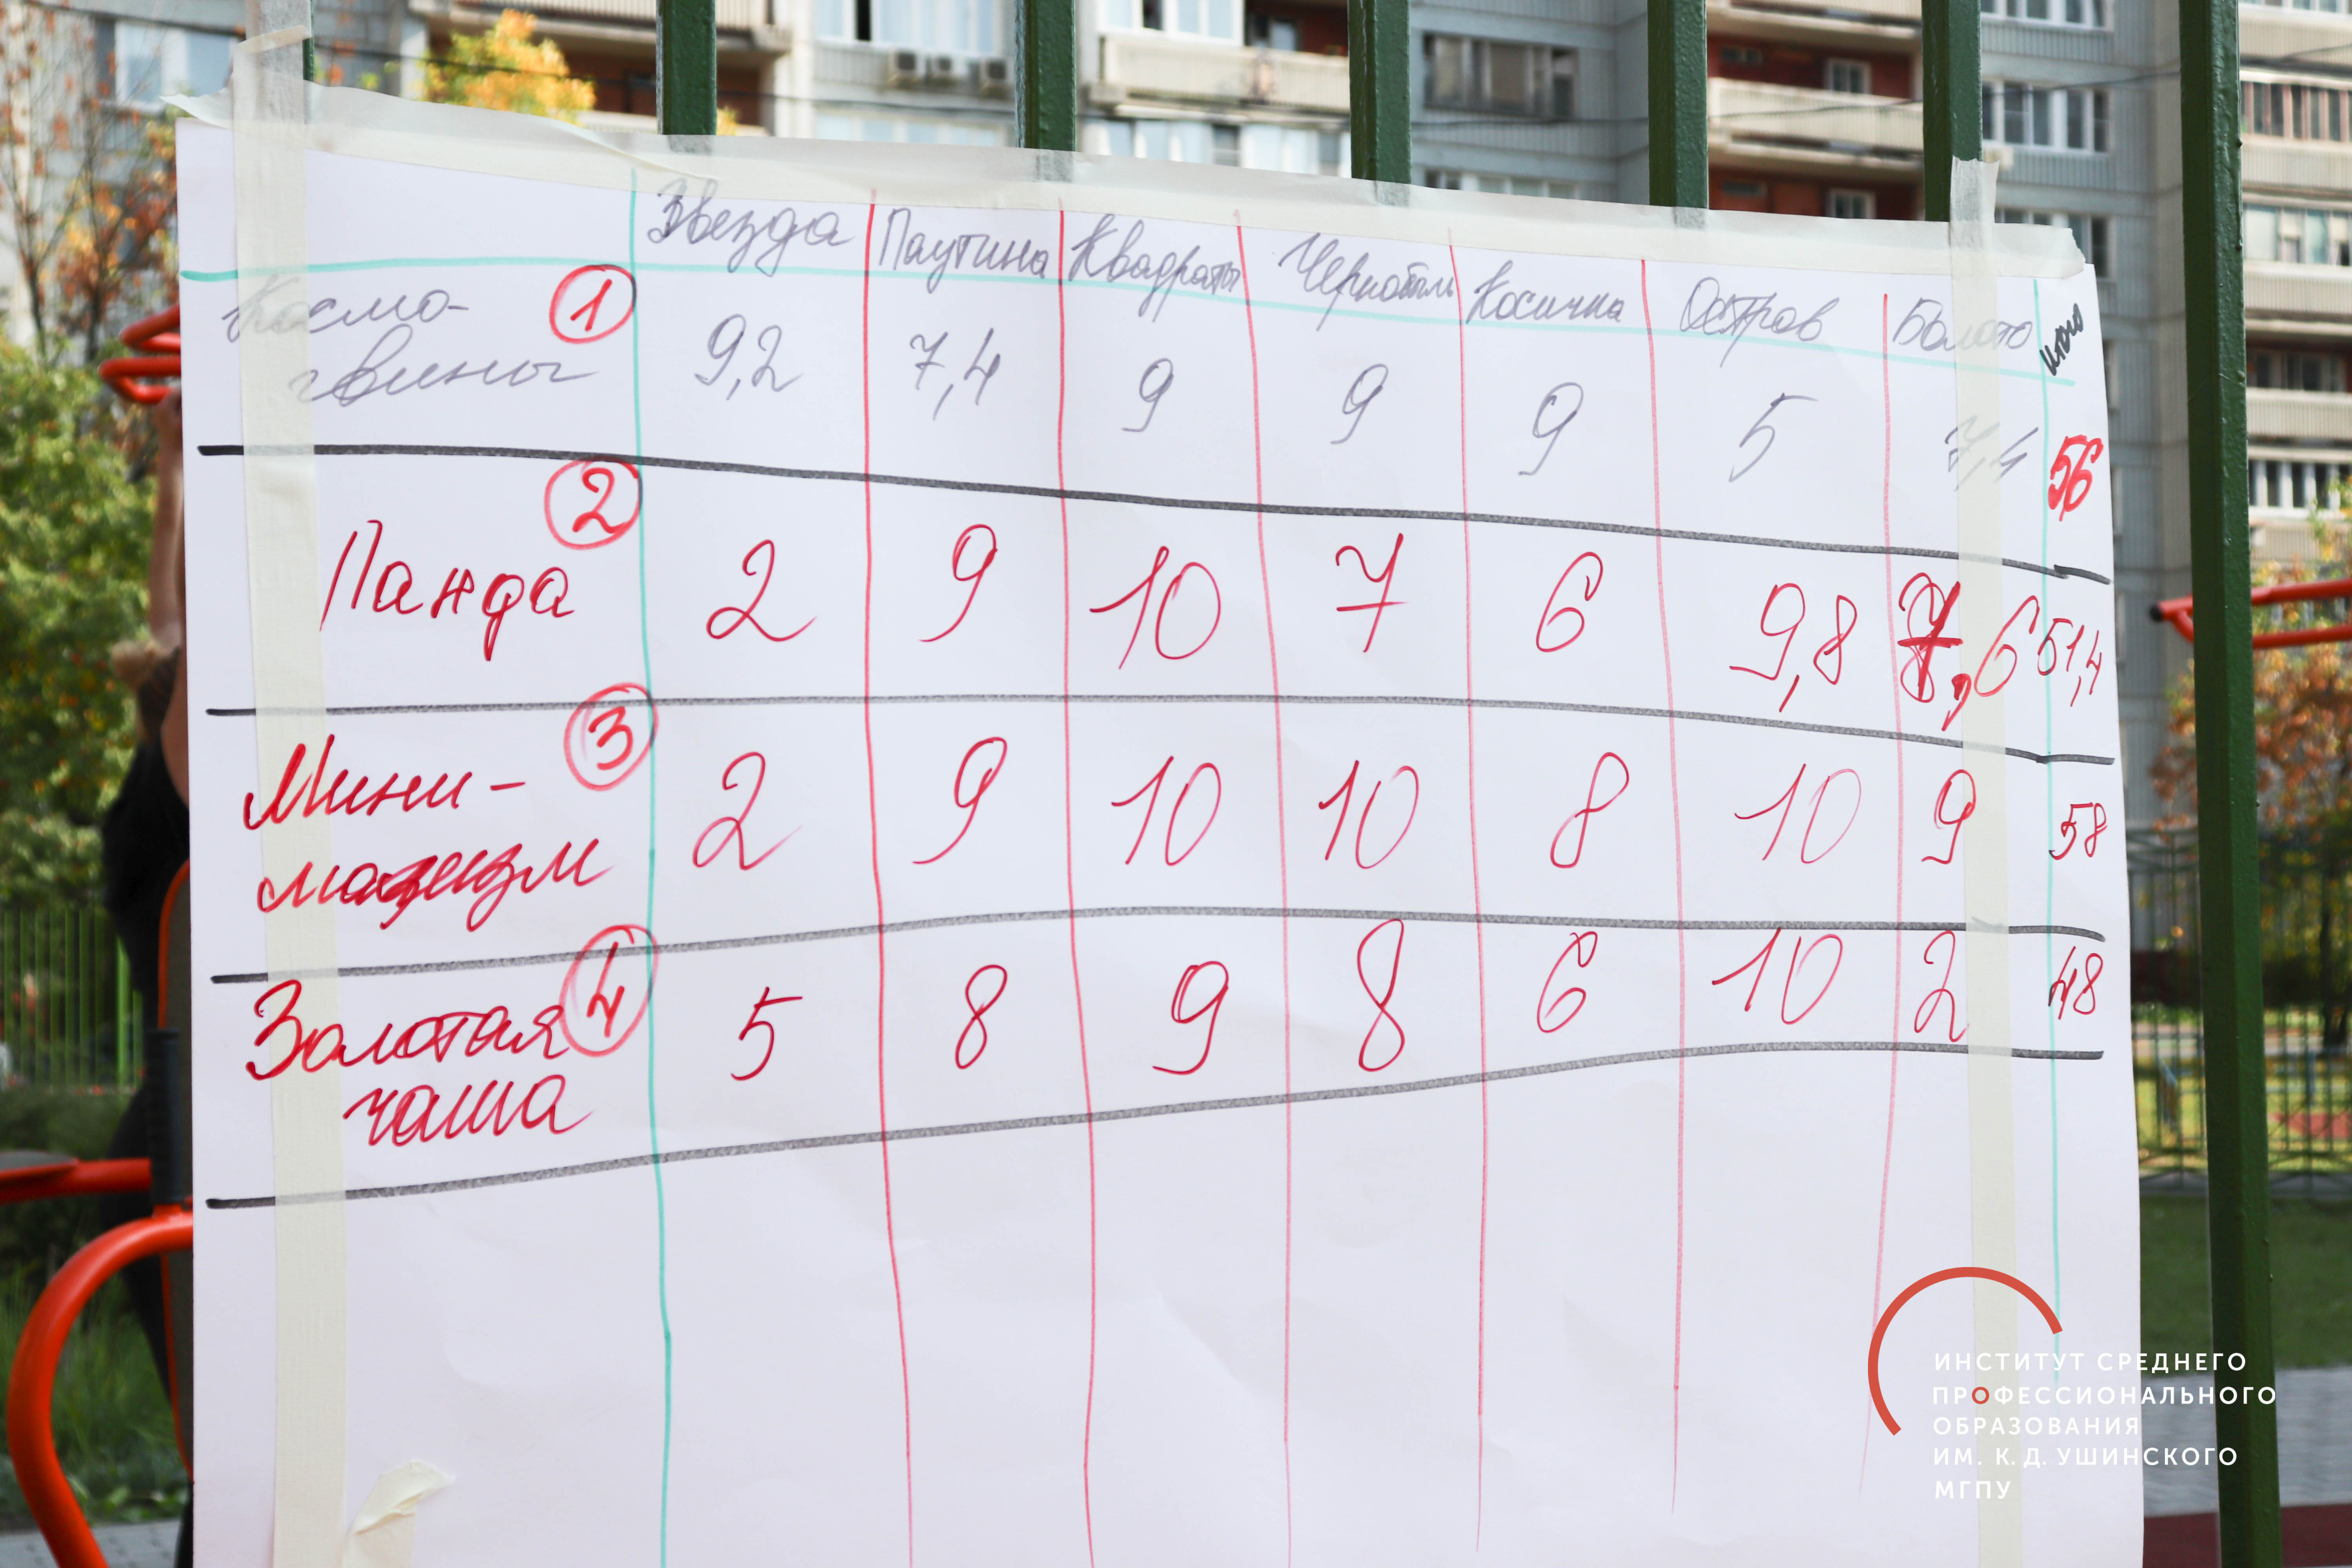 Звезда Паутина Квадраты Чернобыль Косичка Остров Болото Итого
Космо- 1
гвины 9,2 7,4 9 9 9 5 7,4 56
Панда 2 2 9 10 7 6 9,8 7,6 51,4
Мини- 3
мазизм 2 9 10 10 8 10 9 58
Золотая 4 5 8 9 8 6 10 2 48
чаша
ИНСТИТУТ СРЕДНЕГО
ПРОФЕССИОНАЛЬНОГО
ОБРАЗОВАНИЯ
ИМ. К. Д. УШИНСКОГО
МГПУ